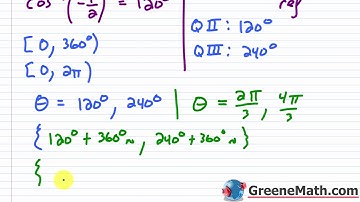 cos⁻¹(-1/2) = 120° ref
[0, 360°)
[0, 2π)
QII: 120°
QIII: 240°
θ = 120°, 240° | θ = 2π/3, 4π/3
{120° + 360°n, 240° + 360°n}
{
GreeneMath.com